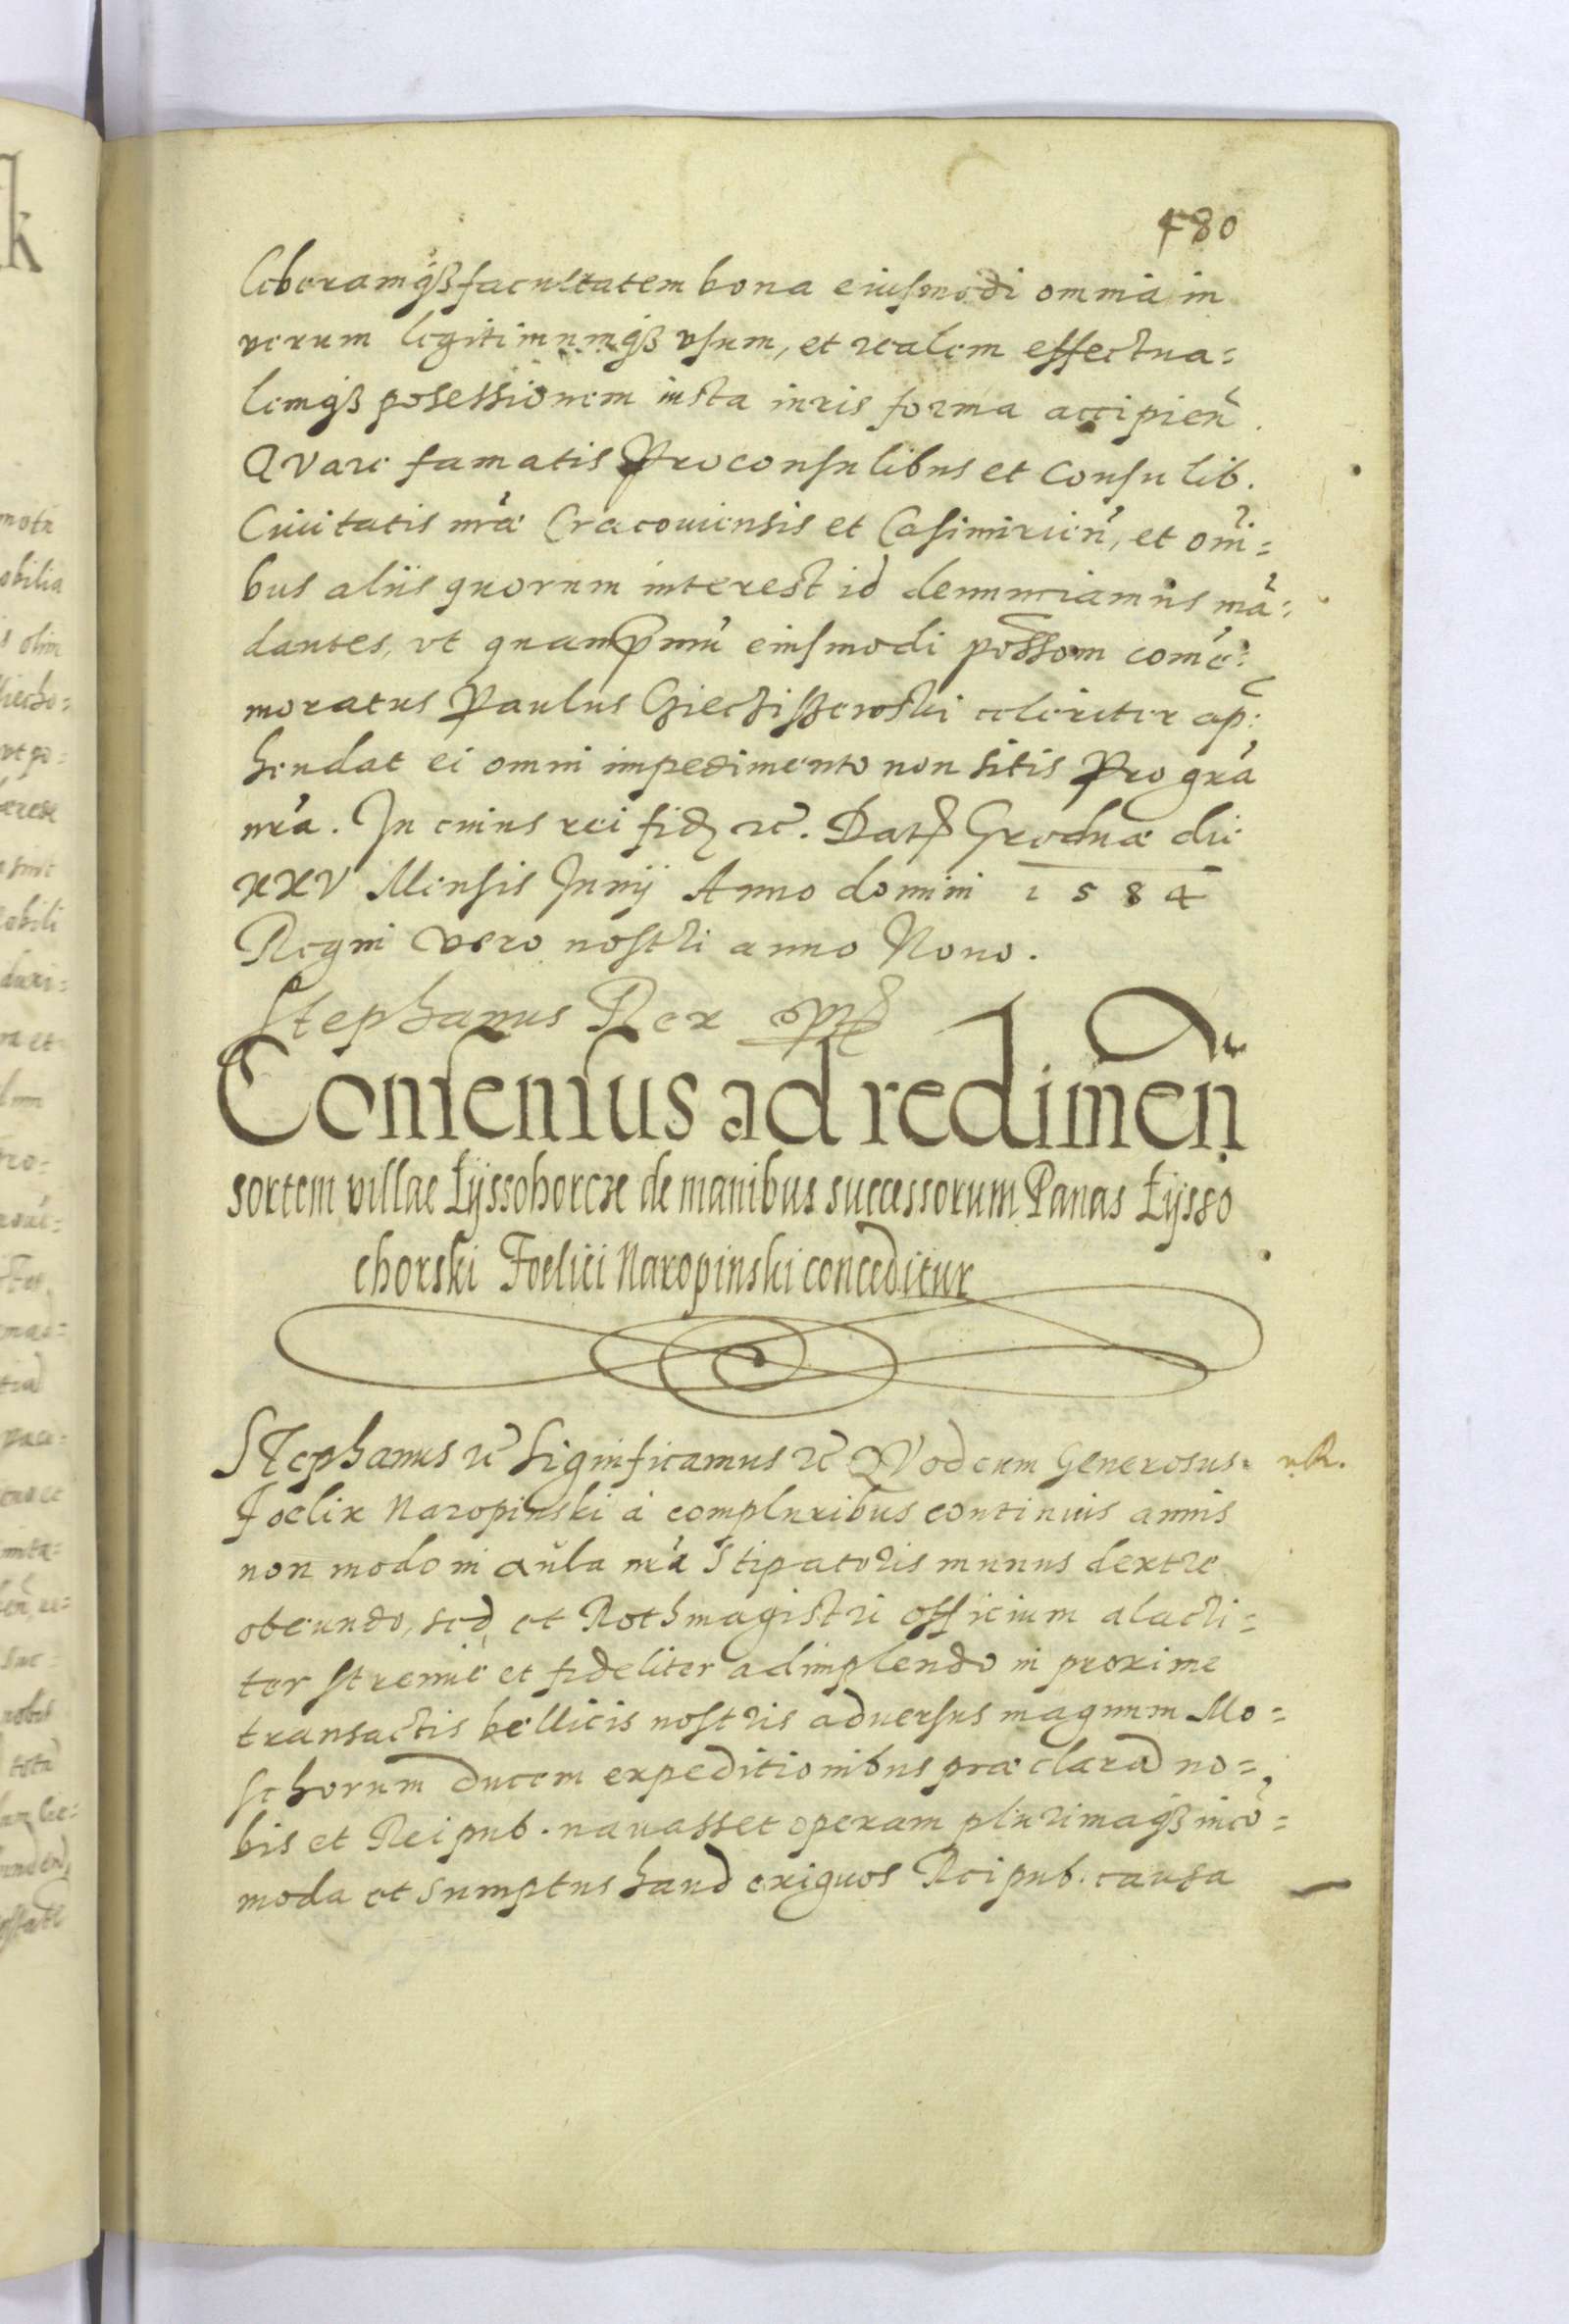 480
liberamq₃ facultatem bona eiusmodi omnia in
verum legitimumq₃ vsum, et realem effectua=
lemq₃ posessionem iusta iuris forma accipien̄.
Quare famatis Proconsulibus et Consulib.
Ciuitatis nr̃æ Cracouiensis et Casimirien̄, et om̄i=
bus aliis quorum interest id denunciamus mā=
dantes, vt quamp̱mū eiusmodi poss̄om com̄e=
moratus Paulus celeriter ap=
hendat ei omni impedimento non sitis Pro gr̃a
nr̃a. In cuius rei fidẽ etc. Datͫ Grodnæ die
XXV Mensis Junij Anno domini 1584
Regni vero nostri anno Nono.
Stephanus Rex
Consensus ad redimen̄
sortem villae Łyssohorcæ de manibus successorum Panas Łysso
chorski Foelici Naropinski conceditur
Stephanus etc Significamus etc Quod cum Generosus
Foelix Naropinski à compluribus continuis annis
non modo in aula nr̃a Stipatoris munus dextre
obeundo, sed et Rothmagistri officium alacri=
ter strenuè et fideliter adimplendo in proxime
transactis bellicis nostris aduersus magnum Mo=
schorum ducem expeditionibus præclarā no=
bis et Reipub. nauasset operam plurimaq₃ incō=
moda et sumptus haud exiguos Reipub. causa